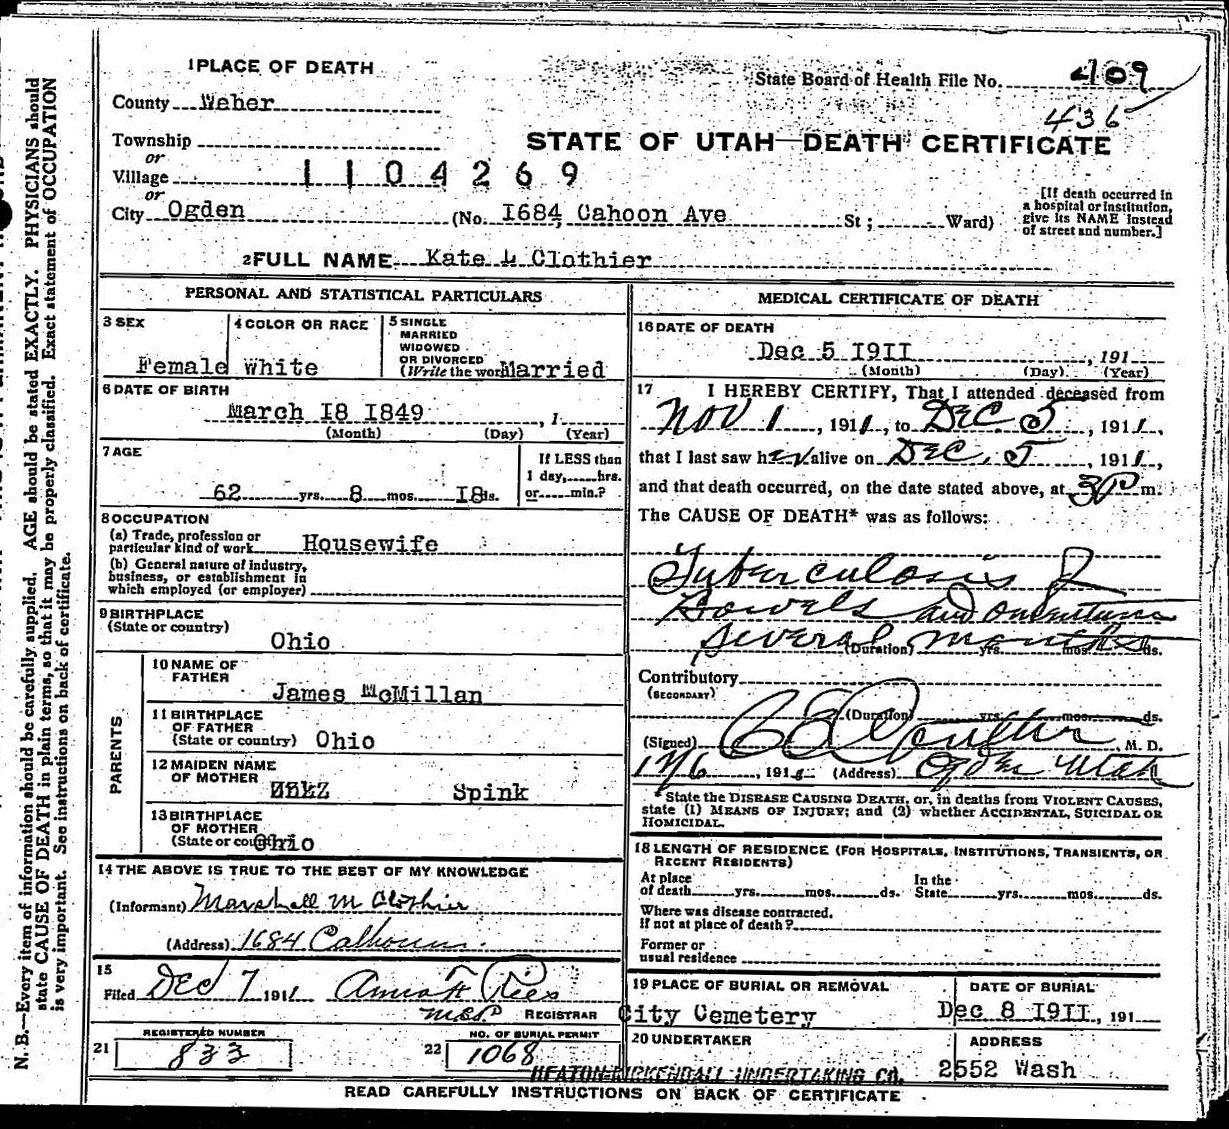 1 PLACE OF DEATH
State Board of Health File No. 409
County Weber
436
Township
STATE OF UTAH—DEATH CERTIFICATE
or
Village 1104269
or
City Ogden (No. I684 Cahoon Ave St; Ward)
[If death occurred in
a hospital or institution,
give its NAME instead
of street and number.]
2 FULL NAME Kate L Clothier
PERSONAL AND STATISTICAL PARTICULARS
3 SEX
Female
4 COLOR OR RACE
White
5 SINGLE
MARRIED
WIDOWED
OR DIVORCED
(Write the word) Married
6 DATE OF BIRTH
March I8 I849, 1
(Month) (Day) (Year)
7 AGE
If LESS than
1 day, hrs.
62 yrs. 8 mos. I8 ds. or min.?
8 OCCUPATION
(a) Trade, profession or
particular kind of work Housewife
(b) General nature of industry,
business, or establishment in
which employed (or employer)
9 BIRTHPLACE
(State or country)
Ohio
PARENTS
10 NAME OF
FATHER
James McMillan
11 BIRTHPLACE
OF FATHER
(State or country) Ohio
12 MAIDEN NAME
OF MOTHER
Spink
13 BIRTHPLACE
OF MOTHER
(State or country) Ohio
14 THE ABOVE IS TRUE TO THE BEST OF MY KNOWLEDGE
(Informant) Marshall M Clothier
(Address) 1684 Calhoun
15
Filed Dec 7 1911 Rees
REGISTRAR
REGISTERED NUMBER
21 833
NO. OF BURIAL PERMIT
22 1068
MEDICAL CERTIFICATE OF DEATH
16 DATE OF DEATH
Dec 5 I9II, 191
(Month) (Day) (Year)
17 I HEREBY CERTIFY, That I attended deceased from
Nov 1, 1911, to Dec. 5, 1911,
that I last saw her alive on Dec. 5, 1911,
and that death occurred, on the date stated above, at m.
The CAUSE OF DEATH* was as follows:
Tuberculosis of
Bowels and omentum
several months
(Duration) yrs. mos. ds.
Contributory
(SECONDARY)
(Duration) yrs. mos. ds.
(Signed) M. D.
12/6, 191 (Address) Ogden Utah
* State the DISEASE CAUSING DEATH, or, in deaths from VIOLENT CAUSES,
state (1) MEANS OF INJURY; and (2) whether ACCIDENTAL, SUICIDAL OR
HOMICIDAL.
18 LENGTH OF RESIDENCE (FOR HOSPITALS, INSTITUTIONS, TRANSIENTS, OR
RECENT RESIDENTS)
At place In the
of death yrs. mos. ds. State yrs. mos. ds.
Where was disease contracted,
If not at place of death?
Former or
usual residence
19 PLACE OF BURIAL OR REMOVAL
City Cemetery
DATE OF BURIAL
Dec 8 I9II, 191
20 UNDERTAKER
ADDRESS
2552 Wash
KIRKENDALL UNDERTAKING CO.
READ CAREFULLY INSTRUCTIONS ON BACK OF CERTIFICATE
N. B.—Every item of information should be carefully supplied. AGE should be stated EXACTLY. PHYSICIANS should
state CAUSE OF DEATH in plain terms, so that it may be properly classified. Exact statement of OCCUPATION
is very important. See instructions on back of certificate.